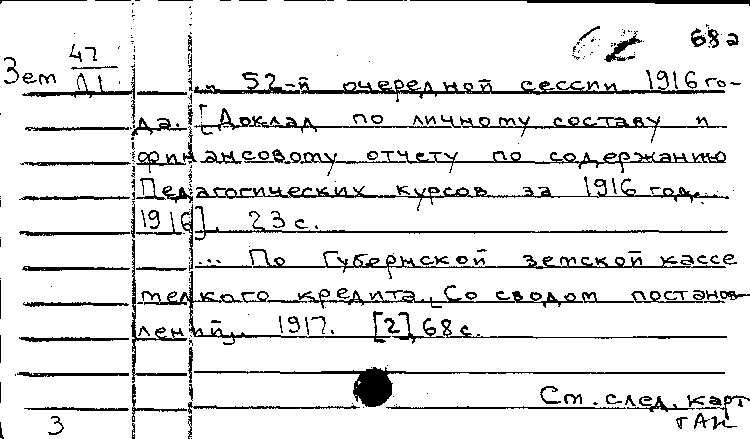 68а
Зем 47
Д1
... 52-й очередной сессии 1916 го-
да. [Доклад по личному составу и
финансовому отчету по содержанию
Педагогических курсов за 1916 год...
1916]. 23 с.
... По Губернской земской кассе
мелкого кредита. [Со сводом постанов-
лений]. 1917. [2], 68 с.
См. след. карт
3